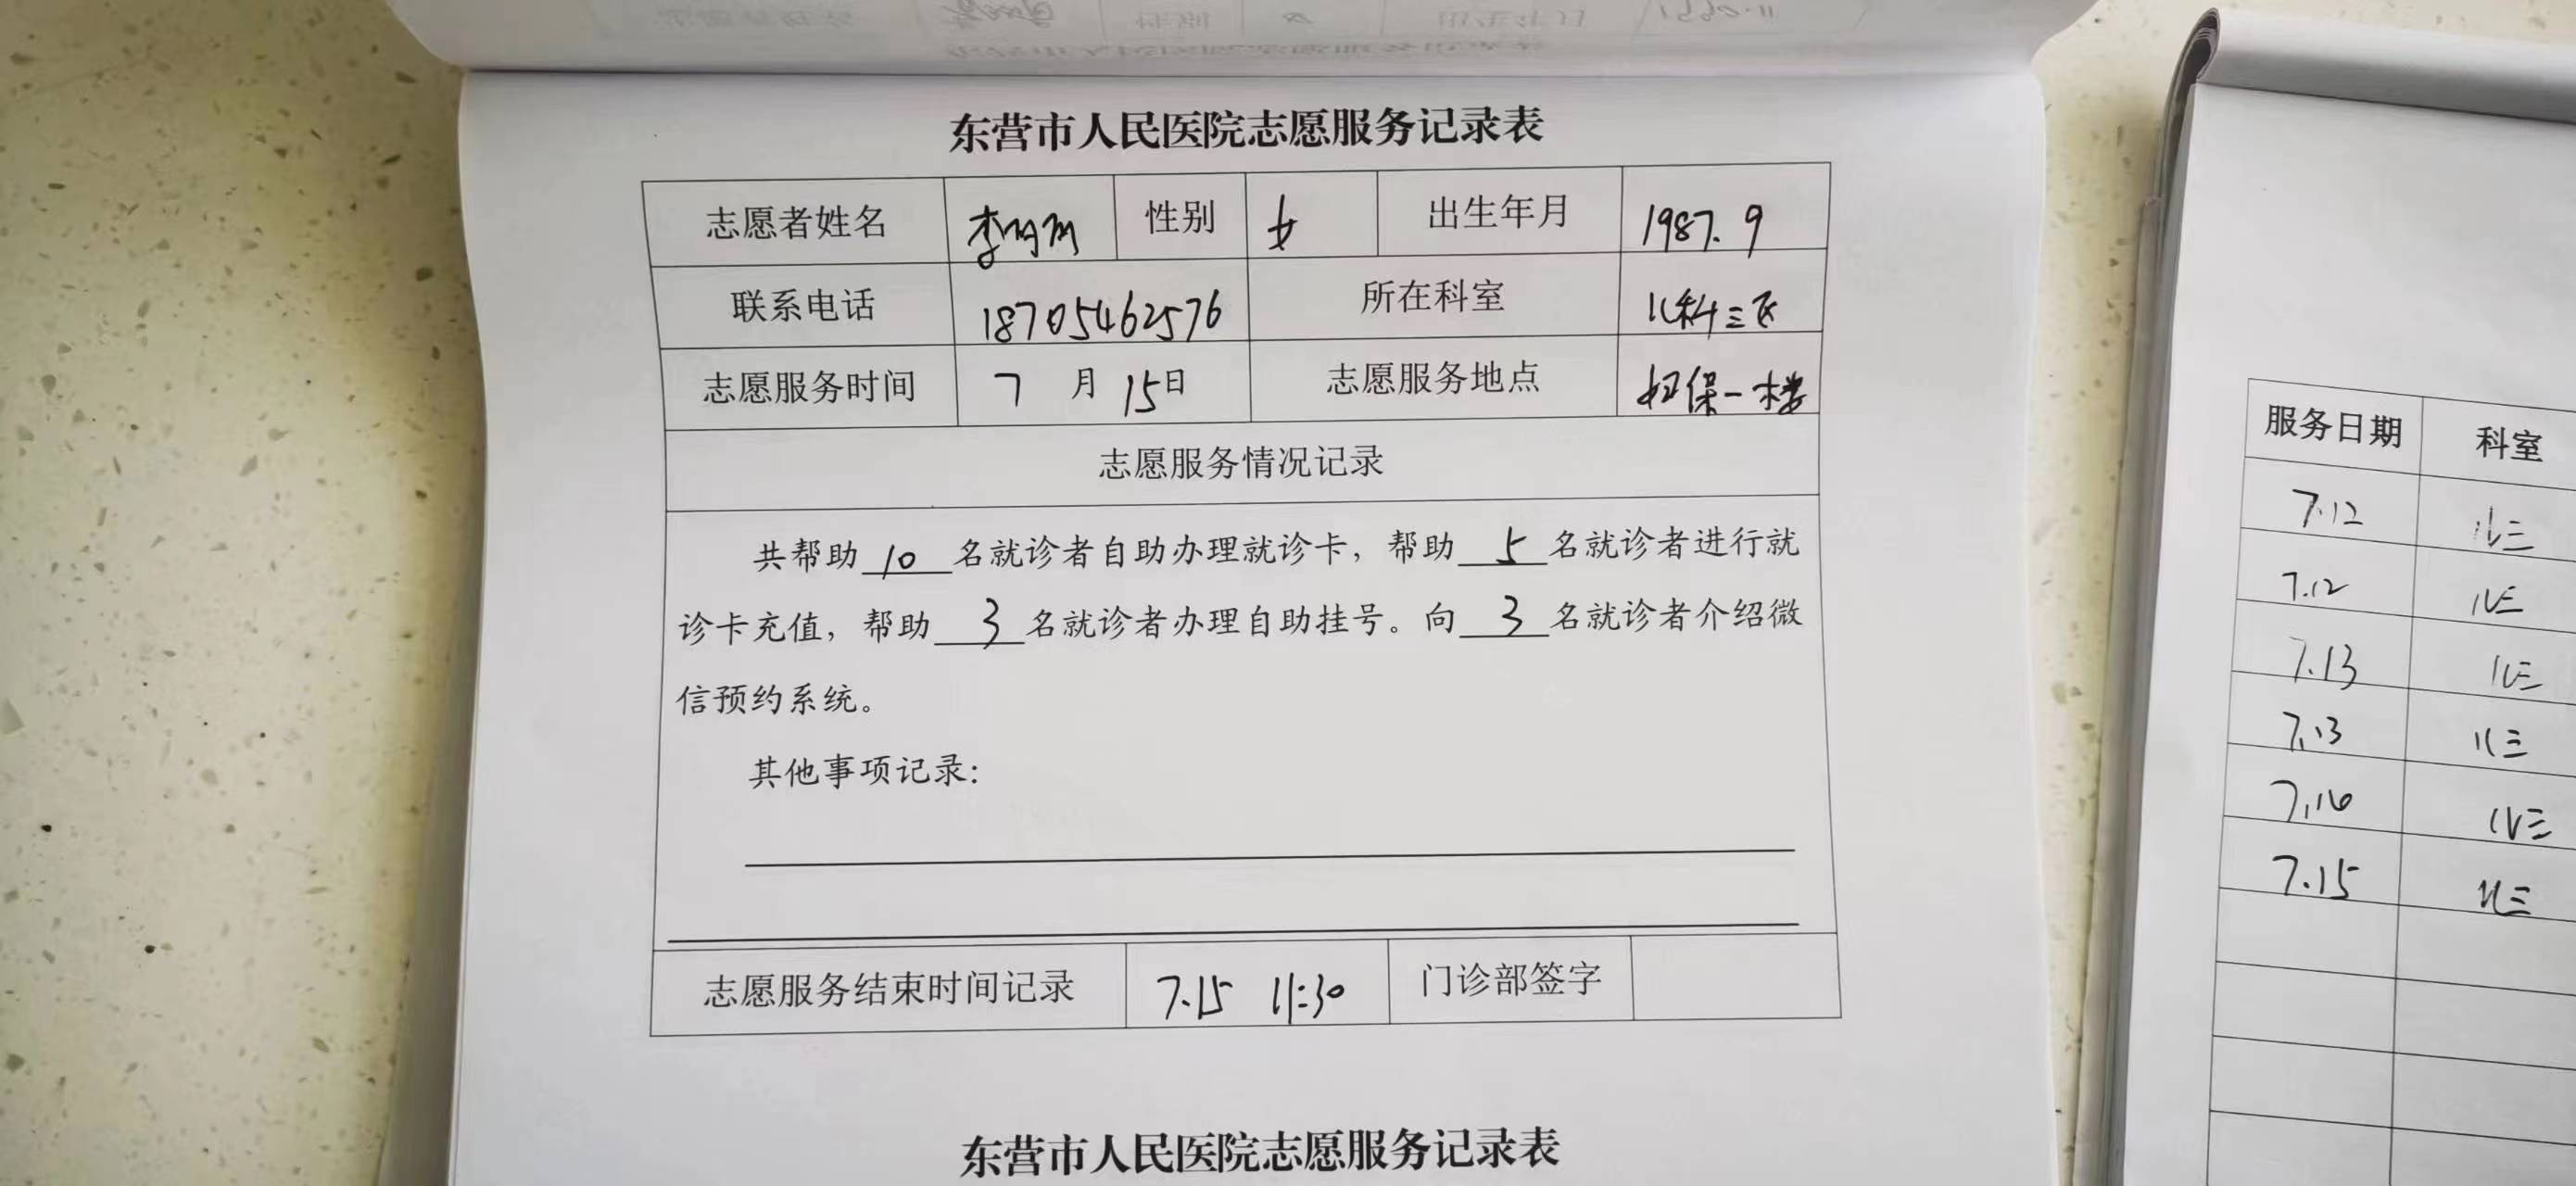 东营市人民医院志愿服务记录表
志愿者姓名 李 性别 女 出生年月 1987.9
联系电话 18705462576 所在科室 儿科三区
志愿服务时间 7 月 15日 志愿服务地点 妇保一楼
志愿服务情况记录
共帮助 10 名就诊者自助办理就诊卡，帮助 5 名就诊者进行就
诊卡充值，帮助 3 名就诊者办理自助挂号。向 3 名就诊者介绍微
信预约系统。
其他事项记录：
志愿服务结束时间记录 7.15 11:30 门诊部签字
东营市人民医院志愿服务记录表
服务日期 科室
7.12 儿三
7.12 儿三
7.13 儿三
7.13 儿三
儿三
7.15 儿三